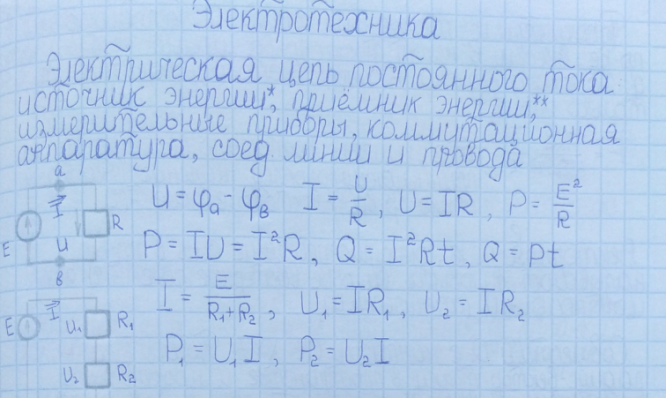 Электротехника
Электрическая цепь постоянного тока
источник энергии*, приёмник энергии,**
измерительные приборы, коммутационная
аппаратура, соед линии и провода
a
U = φa - φв   I = U/R, U = IR, P = E²/R
I
E R
U
P = IU = I²R, Q = I²Rt, Q = Pt
в
I = E/(R₁+R₂), U₁ = IR₁, U₂ = IR₂
I
E U₁ R₁
P₁ = U₁I, P₂ = U₂I
U₂ R₂